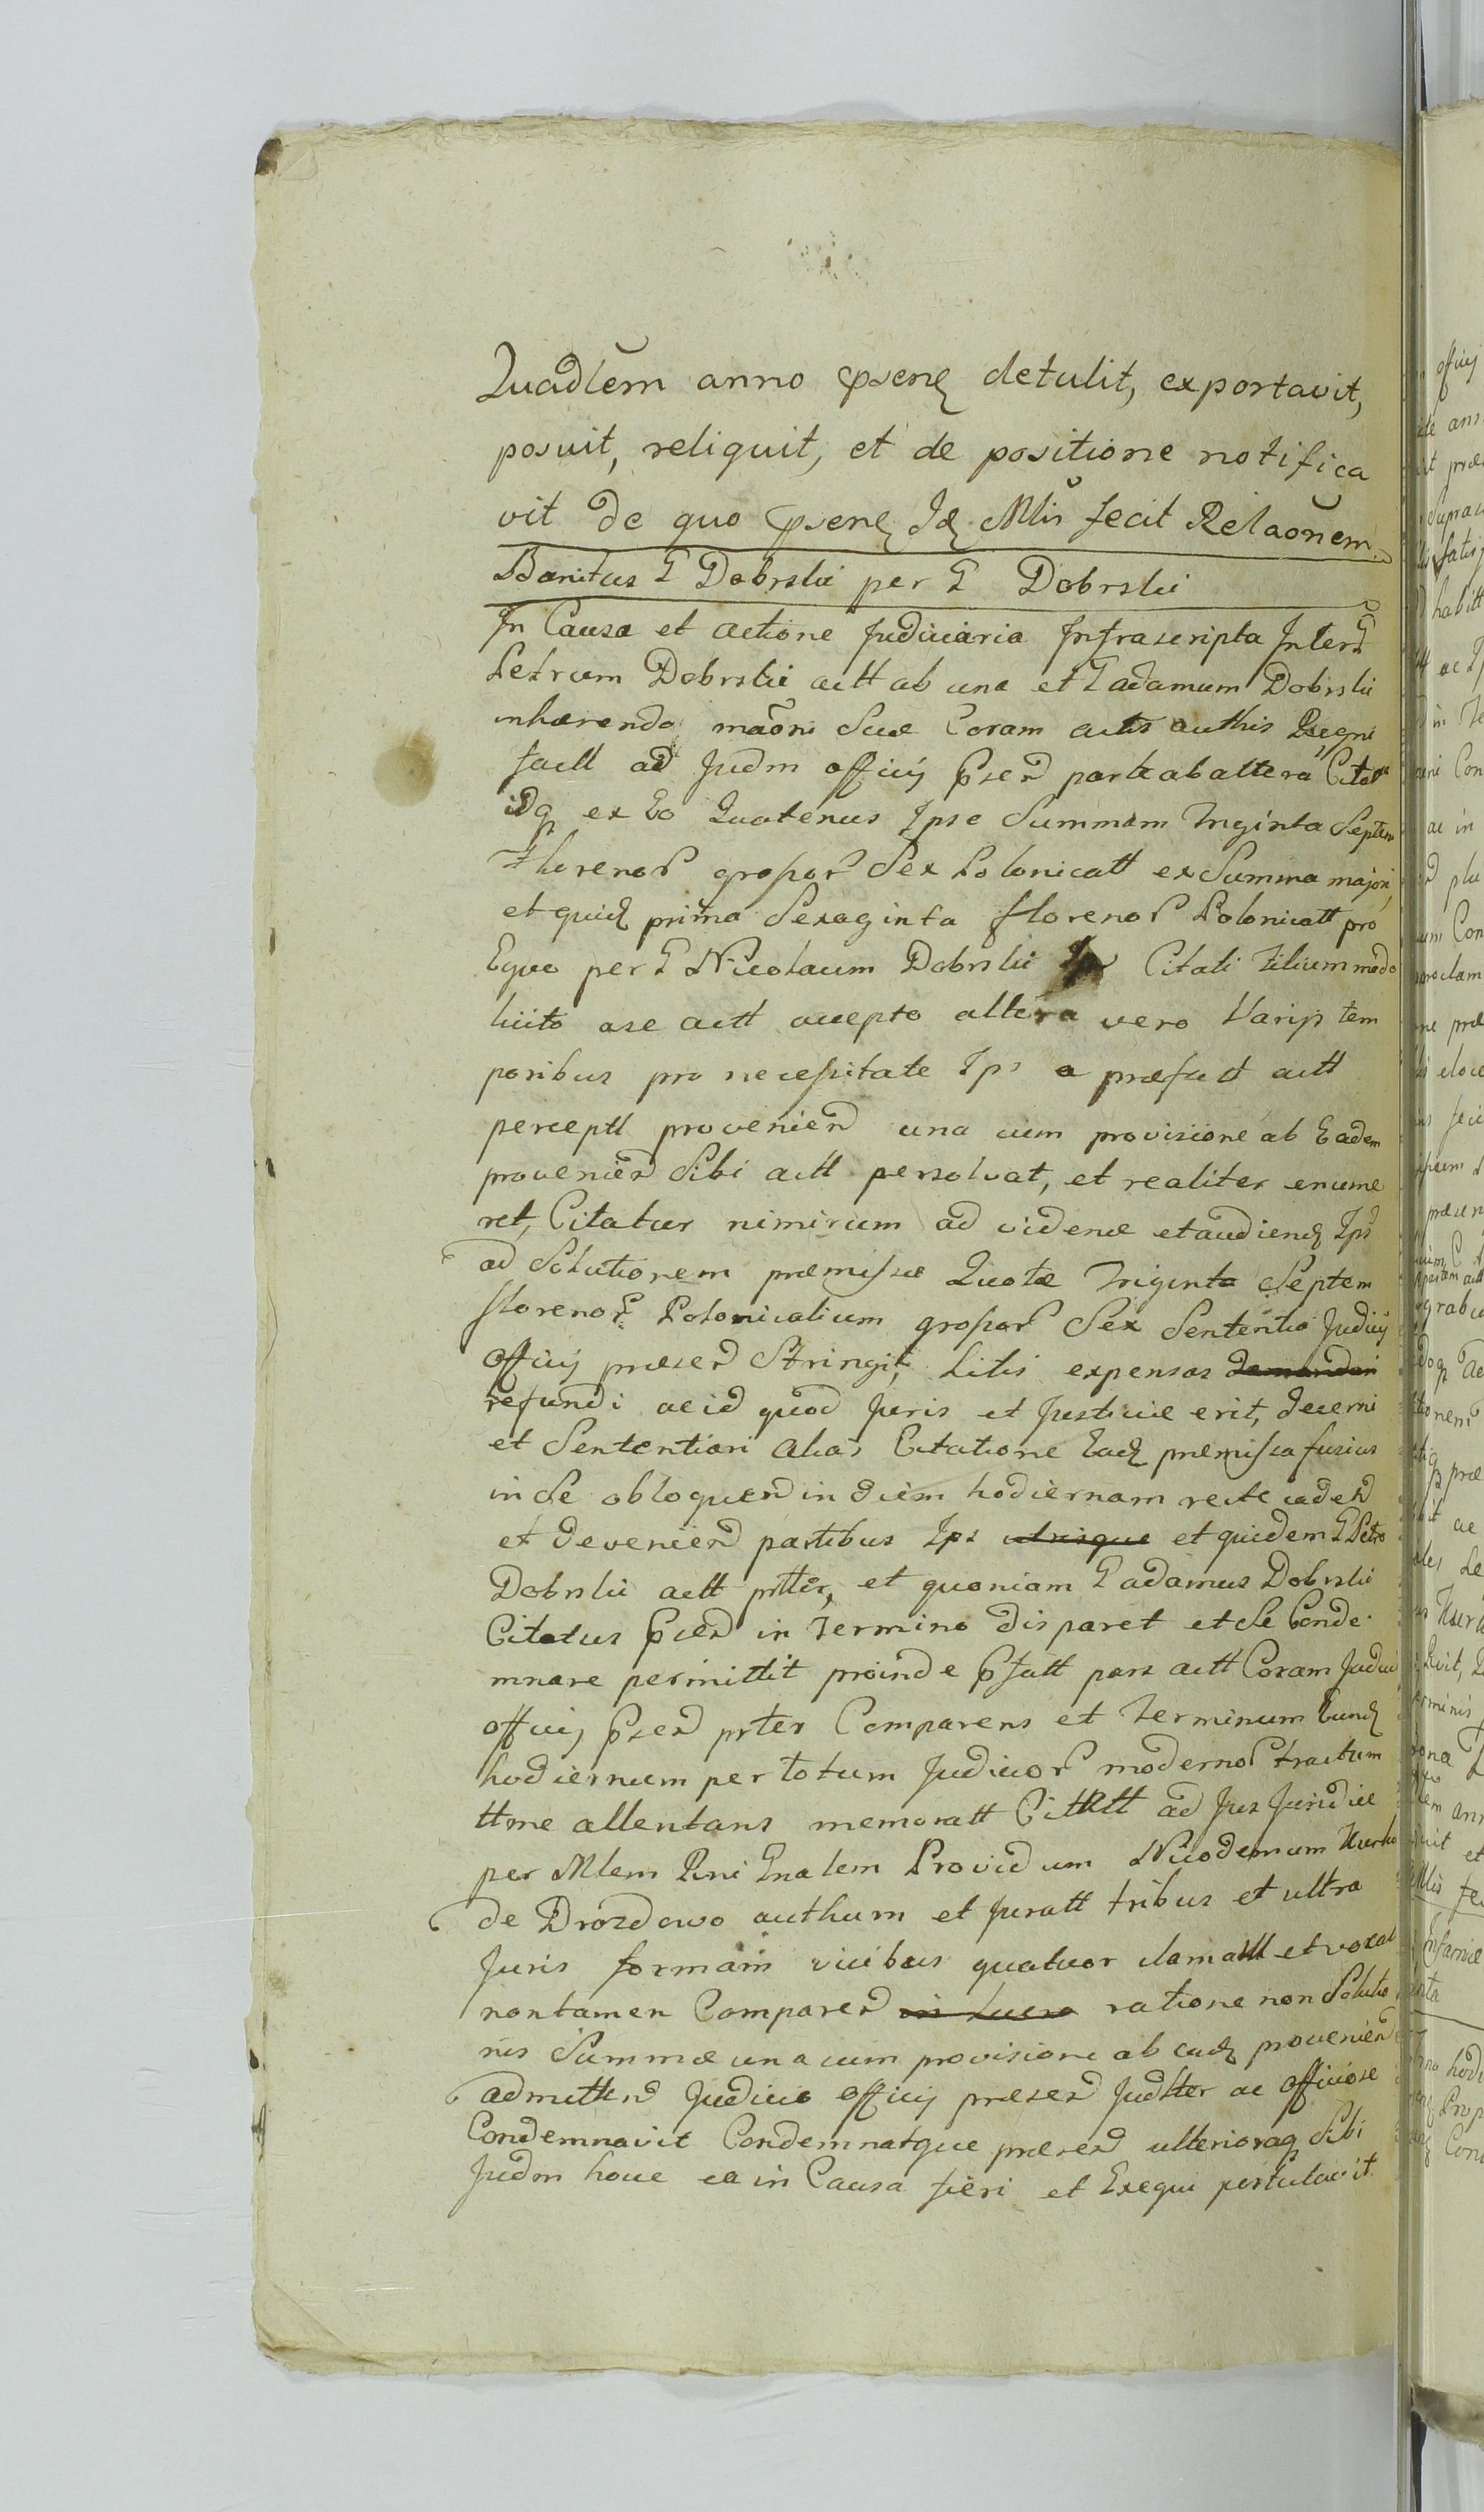 Quadlem anno psenq detulit, exportavit,
posuit, reliquit, et de positione notifica
vit de quo psenq Id Mlis fecit Relaonem
Banitus G Dobrski per G Dobrski
In Causa et actione Judiciaria Infrascripta Inter G
Petrum Dobrski actt ab una et G adamum Dobrski
inhærendo maoni Suæ Coram actis authis Regni
factt ad Judm officij psen parte ab altera Citat
idq ex Eo Quatenus Ipse Summam Triginta Septem
Florenor grossor Sex Polonicatt ex Summa majori,
et quid prima Sexaginta florenor Polonicatt pro
Equo per G Nicolaum Dobrski Citati Filium modo
licito a se actt accepto altera vero Varijs tem
poribus pro necessitate Ips a præfatt actt
perceptt provenien una cum provisione ab Eadem
provenien Sibi actt persolvat, et realiter enume
ret, Citatur nimirum ad vidend et audiend Ips
ad Solutionem præmissæ Quotæ Triginta Septem
florenor Polonicalium grossor Sex Sententia Judicij
officij præsen Stringi, Litis expensas
refundi ac id quod Juris et Justiciæ erit, decerni
et Sententiari alias Citatione Ead præmissa fusius
in Se obloquen in diem hodiernam recte caden
et devenien partibus Ips utrisque et quidem G Petro
Dobrski actt prtter, et quoniam G adamus Dobrski
Citatus psen in Termino disparet et Se Conde
mnare permittit proinde pfatt pars actt Coram Judicio
officij psen prter Comparens et Terminum Eund
hodiernum per totum Judicior modernor tractum
ttme attentans memoratt Citatt ad Jus Juridice
per Mlem Rni Gnalem Providum Nicodemum
de Drozdowo authum et Juratt tribus et ultra
Juris formam vicibus quatuor clamatt et vocat
non tamen Comparen in lucro ratione non Solutio
nis Summæ una cum provisione ab ead provenien
admitten Judicio officij præsen Judtter ac officiose
Condemnavit Condemnatque præsen ulterioraq Sibi
Judm hocce ea in Causa fieri et Exequi postulavit